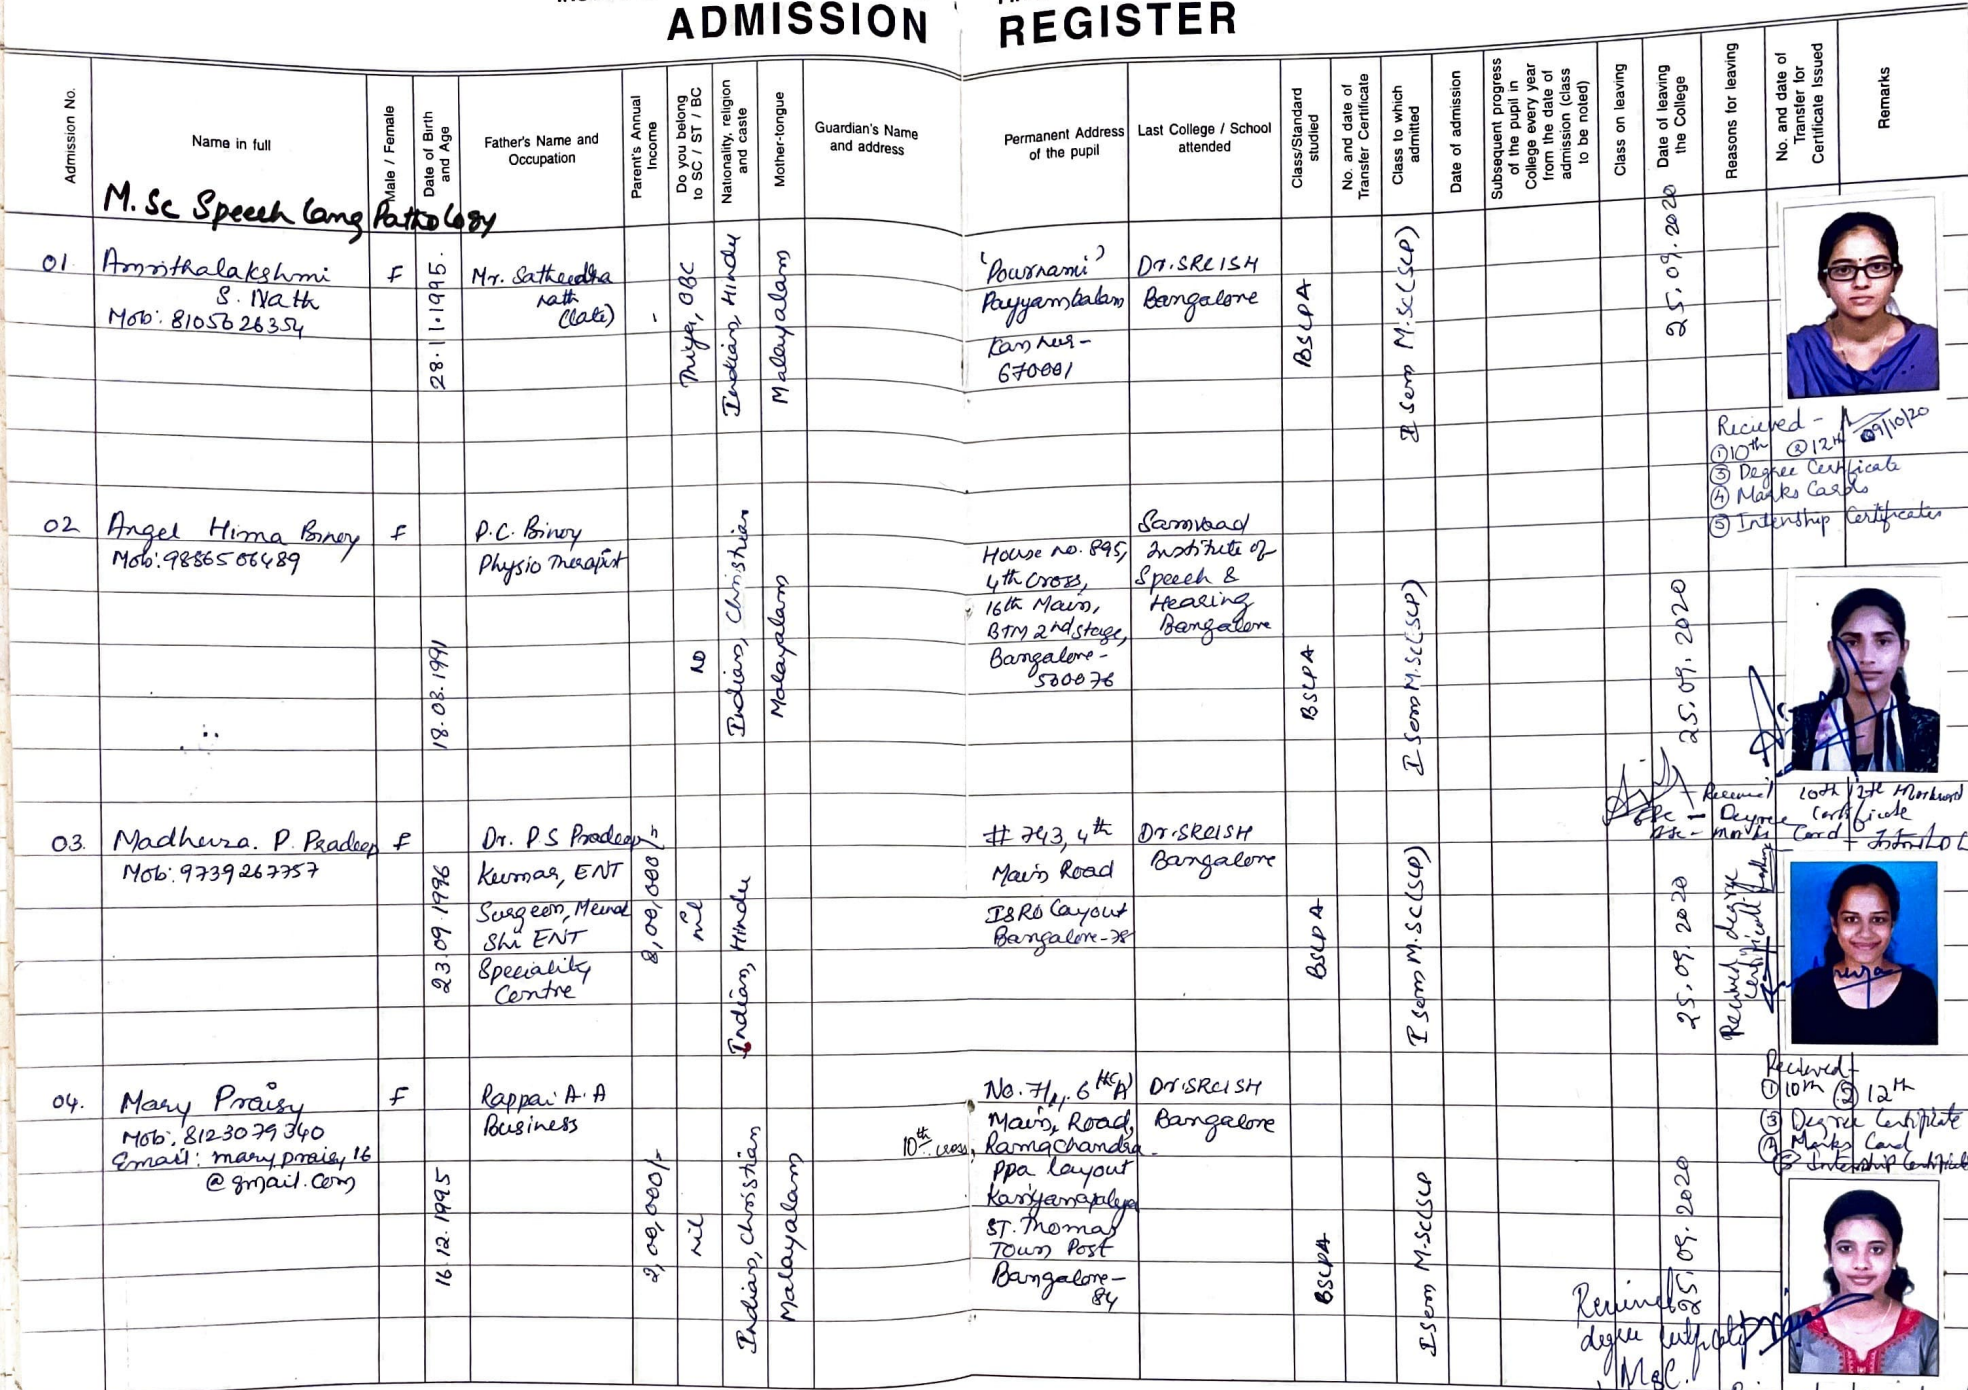 ADMISSION REGISTER
Admission No.
Name in full
Male / Female
Date of Birth and Age
Father's Name and Occupation
Parent's Annual Income
Do you belong to SC / ST / BC
Nationality, religion and caste
Mother-tongue
Guardian's Name and address
Permanent Address of the pupil
Last College / School attended
Class/Standard studied
No. and date of Transfer Certificate
Class to which admitted
Date of admission
Subsequent progress of the pupil in College every year from the date of admission (class to be noted)
Class on leaving
Date of leaving the College
Reasons for leaving
No. and date of Transfer for Certificate Issued
Remarks
M.Sc Speech Lang Pathology
01.
Amrithalakshmi
S. Nath
Mob: 8105626354
F
28.11.1995.
Mr. Satheedra
nath
(late)
Thiyya, OBC
Indian, Hindu
Malayalam
'Pournami'
Payyambalam
Kannur-
670001
Dr.SRCISH
Bangalore
BSLPA
I sem M.Sc(SLP)
25.09.2020
Recieved -
09/10/20
① 10th ② 12th
③ Degree Certificate
④ Marks Cards
⑤ Intenship Certificates
02
Angel Hima Binoy
Mob: 9886506489
F
18.03.1991
P.C. Binoy
Physio Therapist
NO
Indian, Christian
Malayalam
House no. 895,
4th Cross,
16th Main,
BTM 2nd Stage,
Bangalore-
560076
Samvaad
Institute of
Speech &
Hearing
Bangalore
BSLPA
I sem M.Sc(SLP)
25.09.2020
Received 10th 12th Markscard
Bsc - Degree Certificate
Bsc - marks Card +
03.
Madhura. P. Pradeep
Mob: 9739267757
F
23.09.1996
Dr. P.S Pradeep
Kumar, ENT
Surgeon, Meenak
shi ENT
Speciality
Centre
8,00,000/-
nil
Indian, Hindu
# 743, 4th
Main Road
ISRO Layout
Bangalore-78
Dr.SRCISH
Bangalore
BSLPA
I sem M.Sc(SLP)
25.09.2020
Received degree
Certificate
Recieved-
① 10th ② 12th
③ Degree Certificate
④ Marks Card
⑤ Intenship Certificate
04.
Mary Praisy
Mob: 8123079340
Email: marypraisy16
@gmail.com
F
16.12.1995
Rappai A.A
Business
2,00,000/-
nil
Indian, Christian
Malayalam
No. 7/1, 6th (A)
Main, Road,
10th cross, Ramachandra
ppa layout
Kariyanapalya
ST. Thomas
Town Post
Bangalore-
84
Dr.SRCISH
Bangalore
BSLPA
I sem M.Sc(SLP
25.09.2020
Received
degree
MSC.